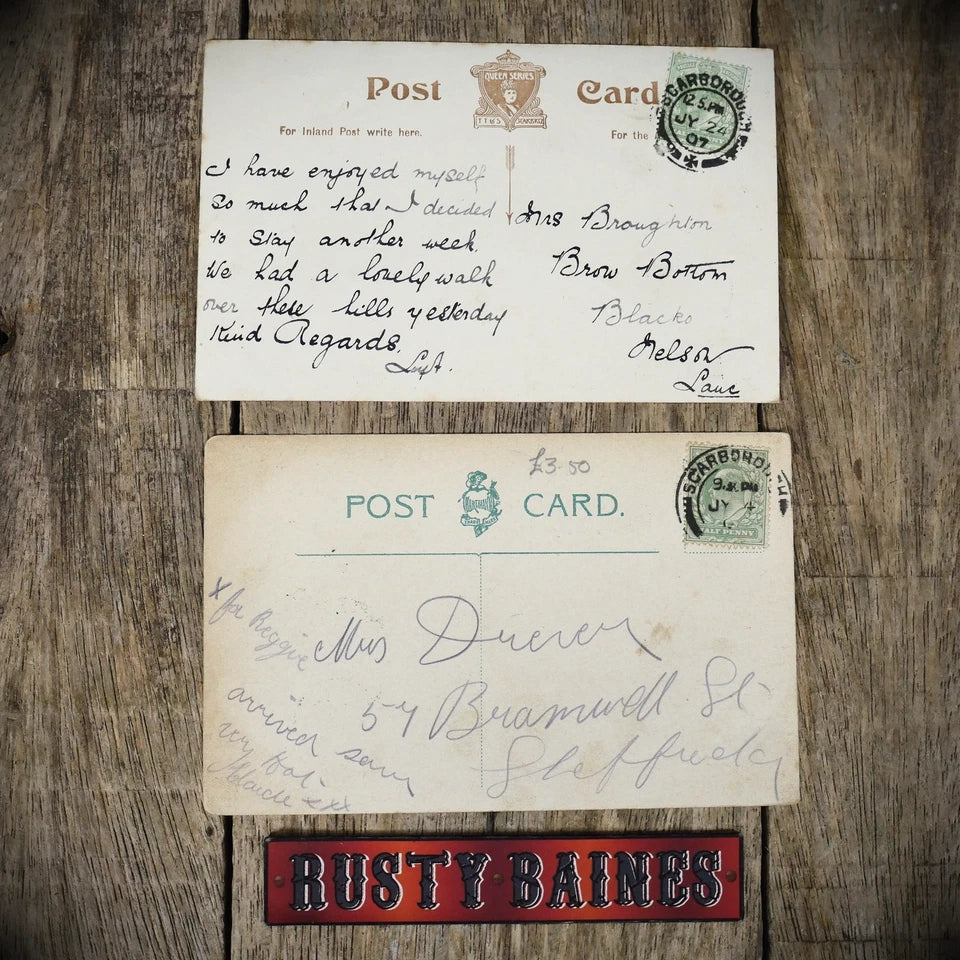 Post Card
QUEEN SERIES
For Inland Post write here.
For the
SCARBOROUGH
12.5 PM
JY 24
07
I have enjoyed myself
so much that I decided
to stay another week.
We had a lovely walk
over these hills yesterday
Kind Regards.
Mrs Broughton
Brow Bottom
Blacko
Nelson
Lanc
£3-50
POST CARD.
SCARBOROUGH
JY 4
HALF PENNY
x for Reggie
Mrs
57 Bramwell St
Sheffield
arrived
very
xxx
RUSTY BAINES